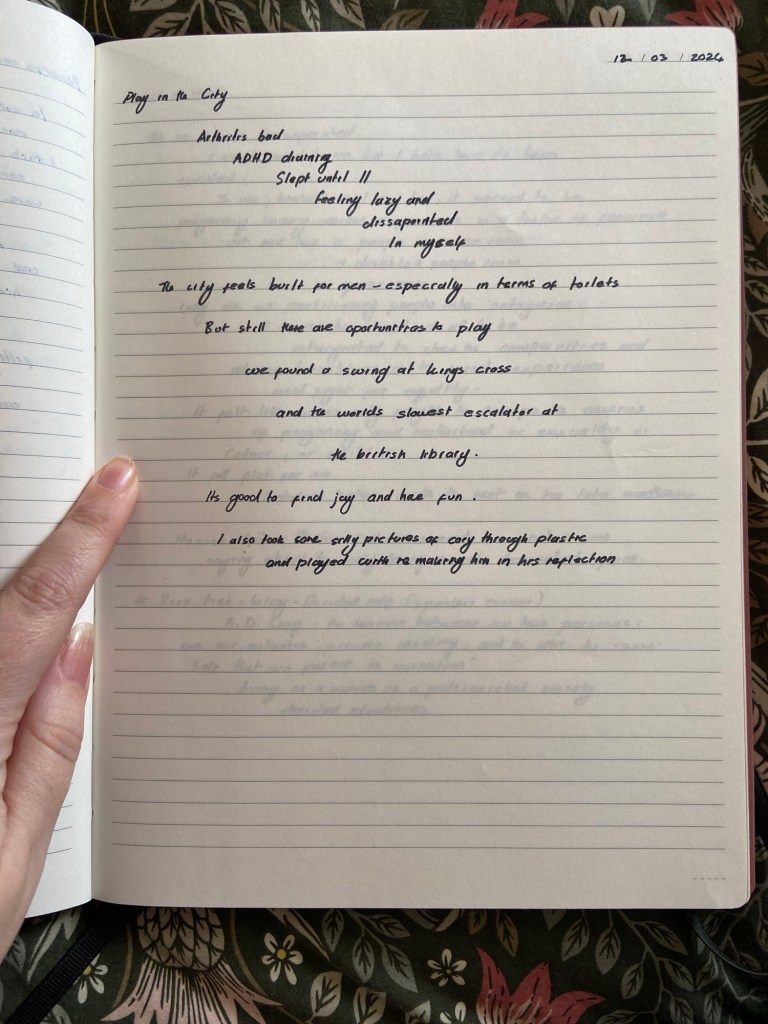 12 / 03 / 2024
Play in the City
Arthritis bad
ADHD draining
Slept until 11
feeling lazy and
dissapointed
In myself
The city feels built for men - especially in terms of toilets
But still there are oportunities to play
we found a swing at kings cross
and the worlds slowest escalator at
the british library.
Its good to find joy and have fun.
I also took some silly pictures of cory through plastic
and played with re making him in his reflection